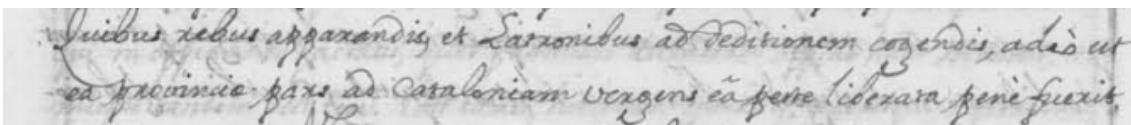 Quibus rebus apparandis, et Latronibus ad deditionem cogendis, adeò ut
ea provinciæ pars ad Cataloniam vergens eâ peste liberata penè fuerit.